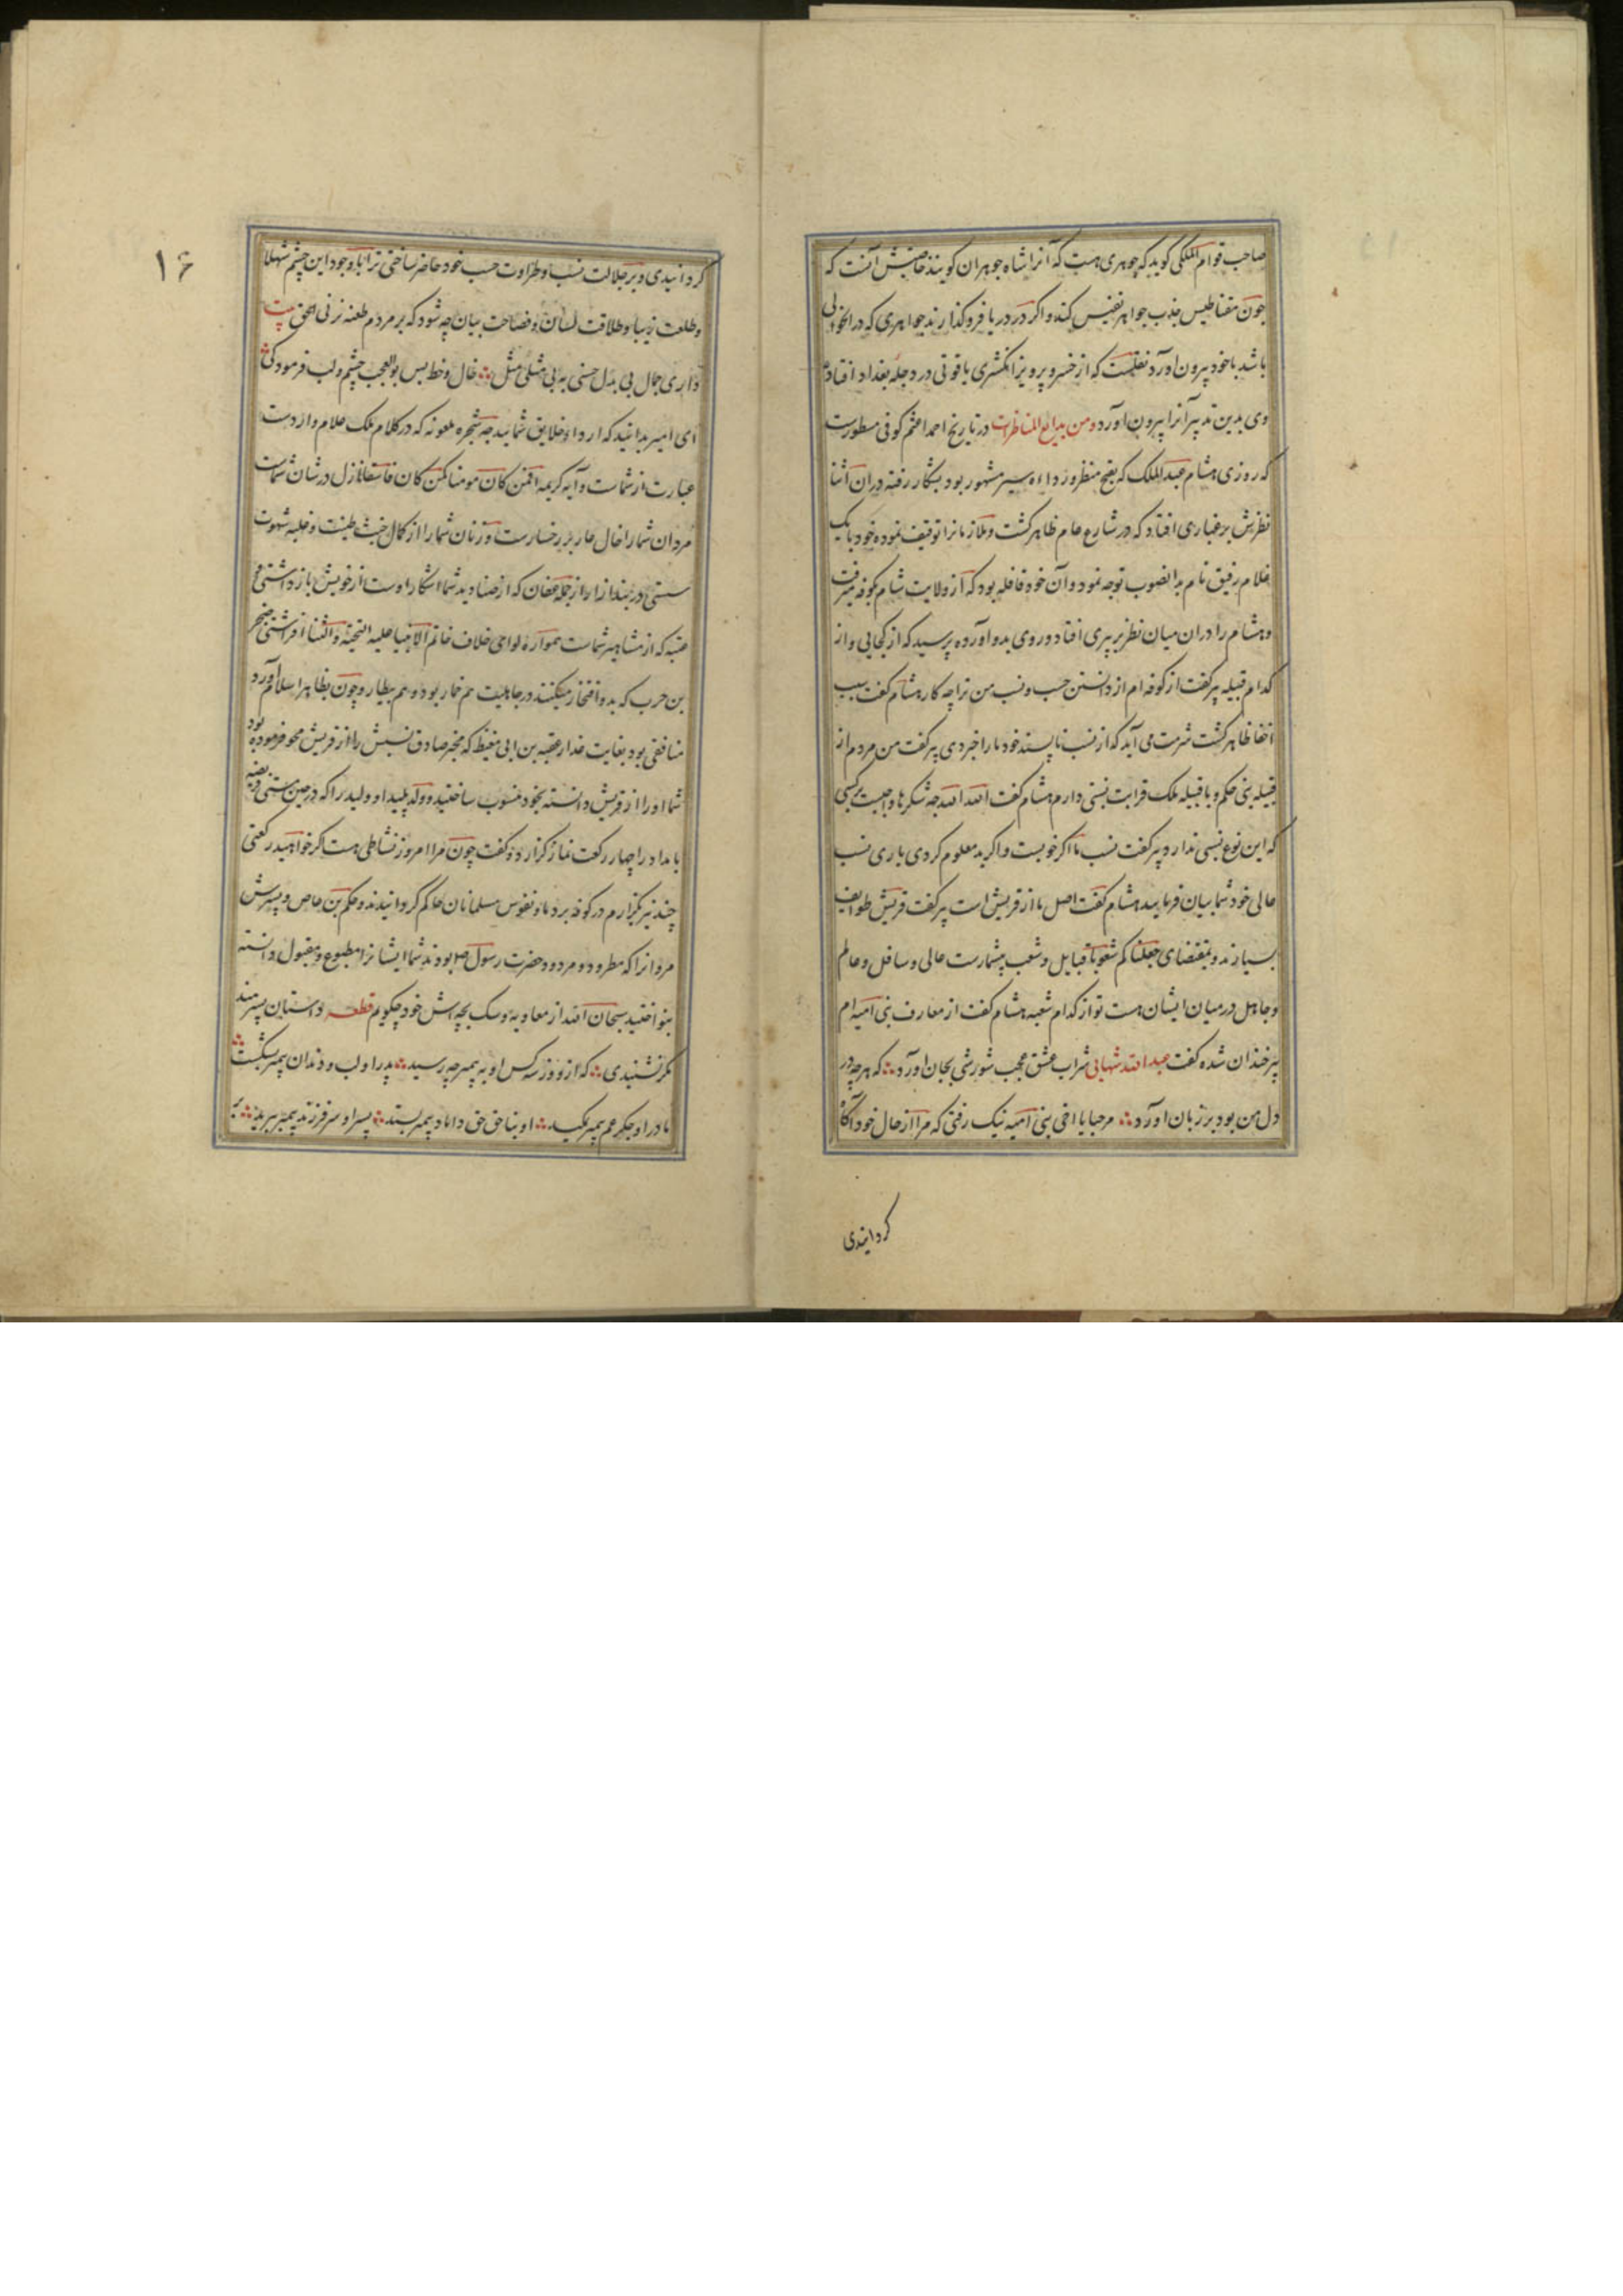 صاحب قوام الملکی کوید که جوهری هست که آنرا شاه جوهران کویند خاصیتش آنست که
چون مقناطیس جذب جواهر نفیس کند و اکر در دریا فرو کذارند جواهری که در آن حوالی
باشد با خود بیرون آورد نقلست که از خسرو پرویز انکشتری یاقوتی در دجله بغداد افتاد
وی بدین تدبیر آنرا بیرون آورد ومن بدایع المناظرات در تاریخ احمد اعثم کوفی مسطورست
که روزی هشام عبد الملک که بقبح منظر و رداءه سیر مشهور بود بشکار رفته در آن اثنا
نظرش بر غباری افتاد که در شارع عام ظاهر کشت و ملازمانرا توقیف نموده خود با یک
غلام رفیق نام بدانصوب توجه نمود و آن خود قافله بود که از ولایت شام بکوفه میرفت
و هشام را در ان میان نظر بر پیری افتاد و روی بدو آورده پرسید که از کجایی و از
کدام قبیله پیر کفت از کوفه ام از دانستن حسب و نسب من ترا چه کار هشام کفت سبب
اخفا ظاهر کشت شرمت می آید که از نسب ناپسند خود ما را خبر دهی پیر کفت من مردم از
قبیله بنی حکم و با قبیله ملک قرابت نسبتی دارم هشام کفت الله الله چه شکرها واجبست بر کسی
که این نوع نسبی ندارد پیر کفت نسب ما اکر خوبست و اکر بد معلوم کردی باری نسب
عالی خود شما بیان فرمایید هشام کفت اصل ما از قریش است پیر کفت قریش طوایف
بسیارند و بمقتضای جعلناکم شعوبا و قبایل و شعب بیشمارست عالی و سافل و عالم
و جاهل در میان ایشان هست تو از کدام شعبه هشام کفت از معارف بنی امیه ام
پیر خندان شده کفت عبد الله شهابی شراب عشق عجب شورشی بجان آورد که هرچه در
دل من بود بر زبان آورد مرحبا یا اخی بنی امیه نیک رفتی که مرا از حال خود آکاه
کردانیدی
۱۶
کردانیدی و بر جلالت نسب و طراوت حسب خود حاضر ساختی ترا با وجود این چشم شهلا
و طلعت زیبا و طلاقت لسان و فصاحت بیان چه شود که بر مردم طعنه نزنی الحق بیت
داری جمال بی بدل حسنی به بی مثلی مثل خال و خط بس بوالعجب چشم و لب فرمود کی
ای امیر بدانید که اردا و خلایق شمایید چه شجره ملعونه که در کلام ملک علام واردست
عبارت از شماست و آیه کریمه افمن کان مومنا کمن کان فاسقا نازل در شان شماست
مردان شما را خال عار بر رخسارست و زنان شما را از کمال خبث طینت و غلبه شهوت
سستی در بند ازار از جمله عفان که از صنادید شما اشکارا و ست از خویش باز داشتی
عتبه که از مشاهیر شماست همواره لوای خلاف خاتم الانبیا علیه التحیته و الثنا افراشتی صخر
بن حرب که بدو افتخار میکنند در جاهلیت هم خمار بود و هم بیطار و چون بظاهر اسلام آورد
منافقی بود بغایت غدار عقبه بن ابی معیط که مخبر صادق نسبش را از قریش محو فرموده بود
شما او را از قریش دانسته بخود منسوب ساختید و ولد پلید او ولید را که در حین مستی فریضه
بامداد را چهار رکعت نماز کزارد و کفت چون مرا امروز نشاطی هست اکر خواهید رکعتی
چند نیز بکزارم در کوفه بر دماء و نفوس مسلمانان حاکم کردانیدند و حکم بن عاص و پسرش
مروانرا که مطرود و مردود حضرت رسول ص بودند شما ایشانرا مطبوع و مقبول دانسته
بنواختید سبحان الله از معاویه و سک بچه اش خود چکویم قطعه داستان پسر هند
مکر نشنیدی که از و و ز سه کس او به پیمبر چه رسید پدر او لب و دندان پیمبر بشکست
مادر او جکر عم پیمبر مکید او بناحق حق داماد پیمبر بستد پسر او سر فرزند پیمبر ببرید